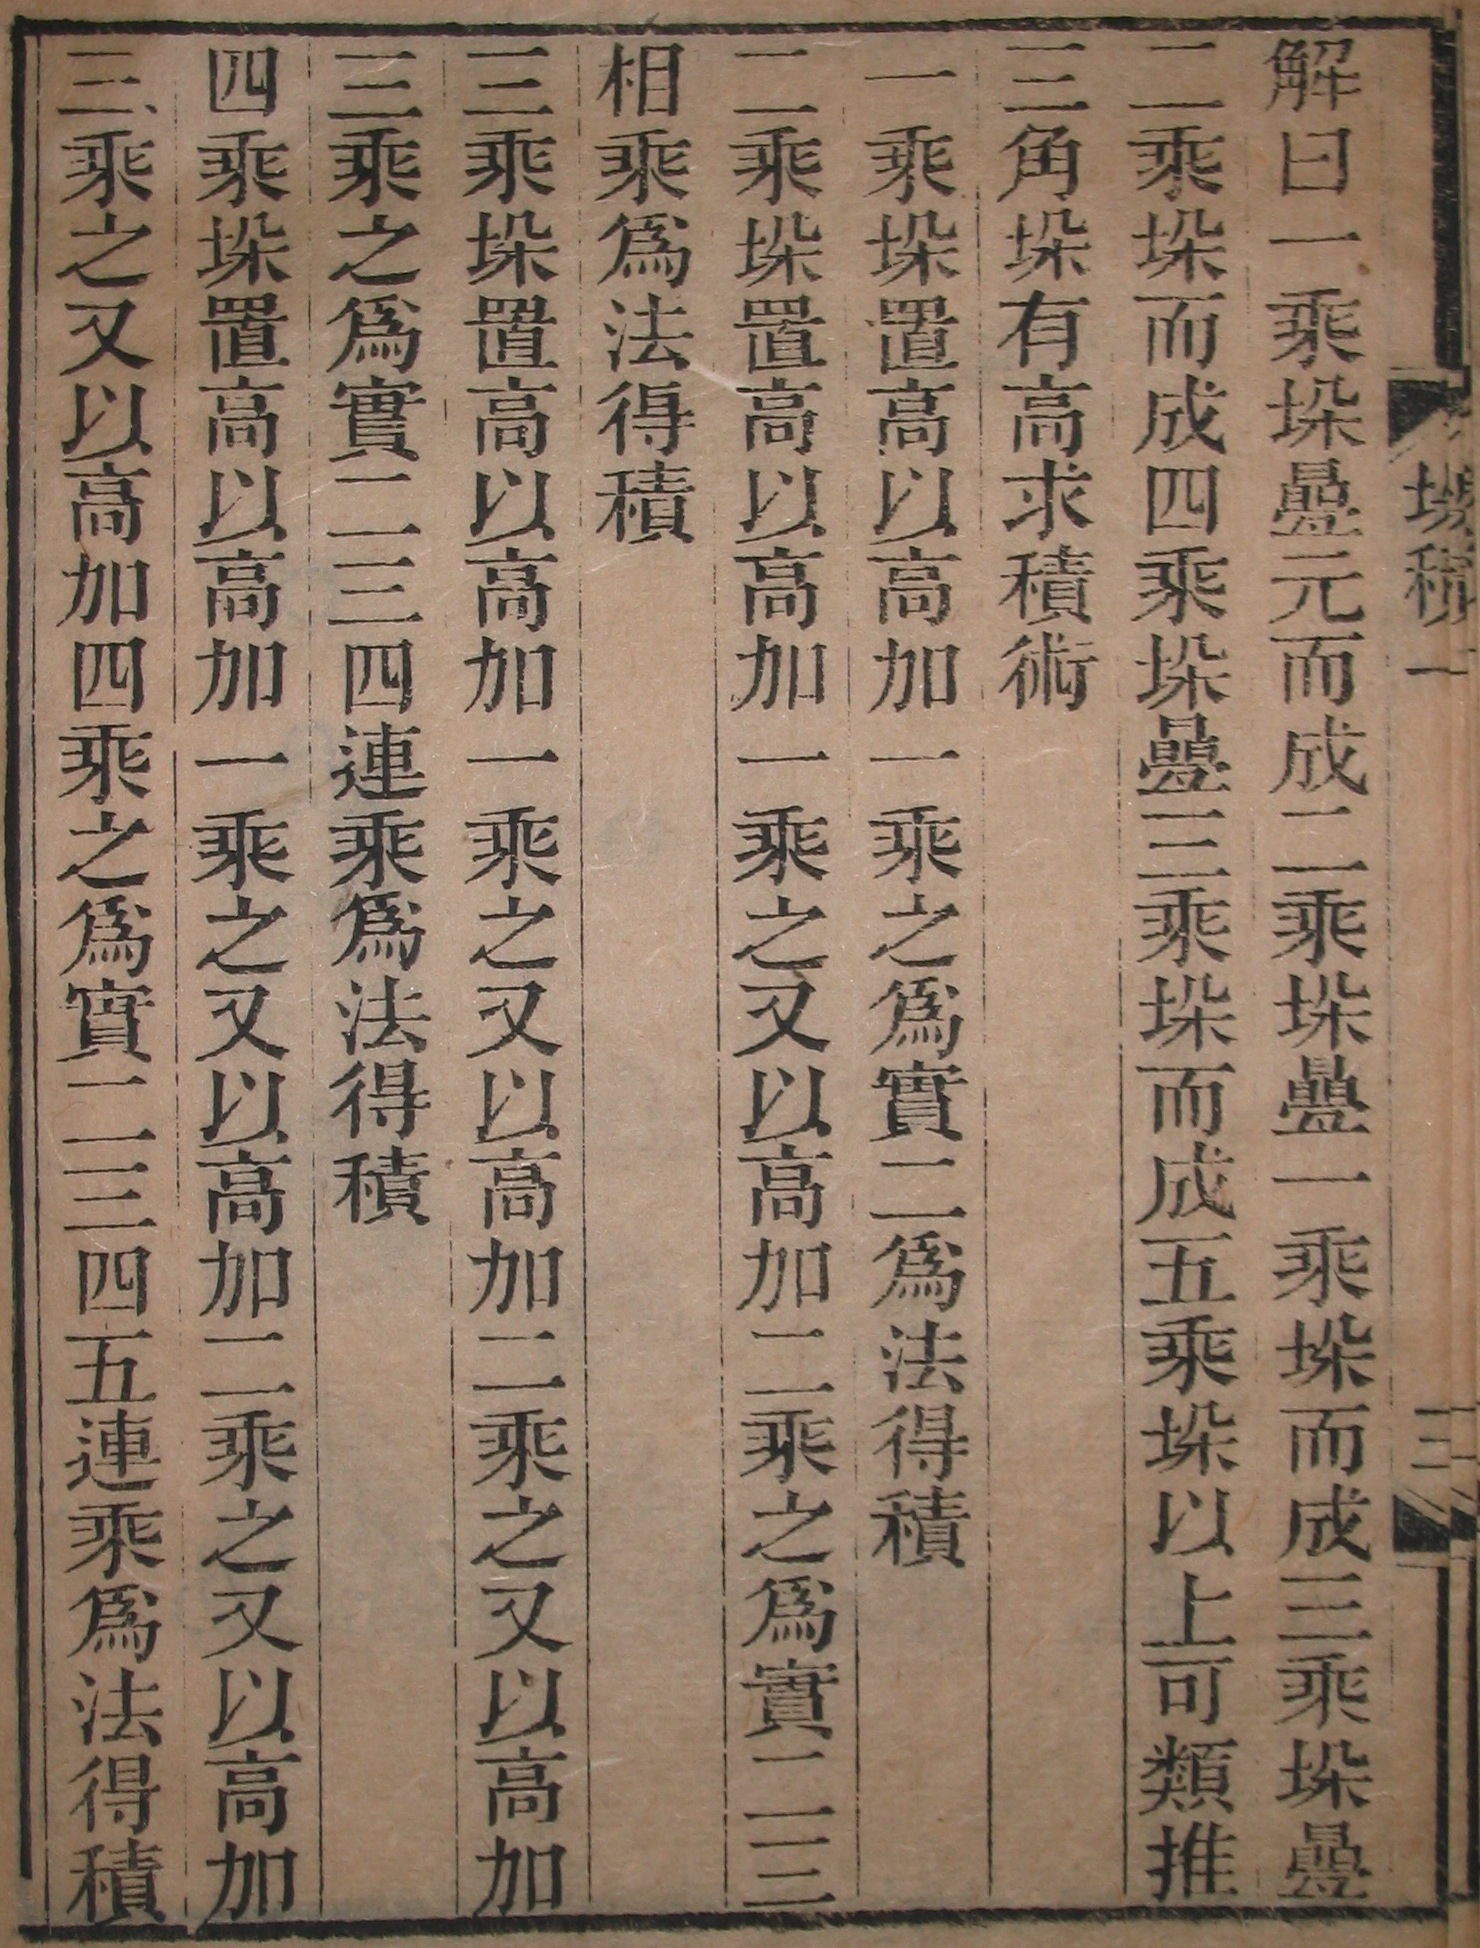 解曰一乘垜疊元而成二乘垜疊一乘垜而成三乘垜疊
二乘垜而成四乘垜疊三乘垜而成五乘垜以上可類推
三角垜有高求積術
一乘垜置高以高加一乘之爲實二爲法得積
二乘垜置高以高加一乘之又以高加二乘之爲實二三
相乘爲法得積
三乘垜置高以高加一乘之又以高加二乘之又以高加
三乘之爲實二三四連乘爲法得積
四乘垜置高以高加一乘之又以高加二乘之又以高加
三乘之又以高加四乘之爲實二三四五連乘爲法得積